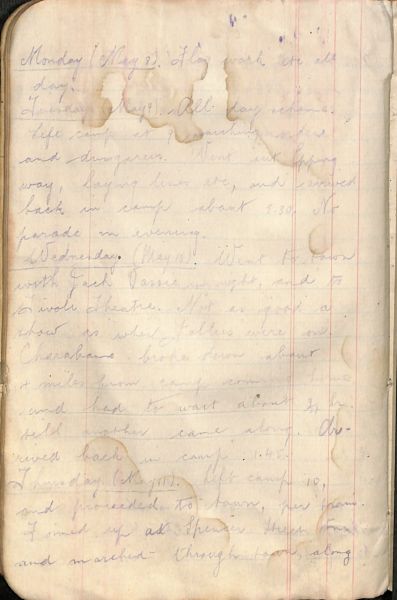 Monday (May 8). Flag work etc all
day.
Tuesday (May 9). All day scheme.
Left camp at 9 marching order
and dungarees. Went out Epping
way, laying lines etc, and arrived
back in camp about 5.30. No
parade in evening.
Wednesday. (May 10). Went to town
with Jack in night, and to
Tivoli Theatre. Not as good a
show as when Follies were on.
Charabanc broke down about
4 miles from camp coming home
and had to wait about 3/4 hr.
till another came along. Ar-
rived back in camp 1.45.
Thursday. (May 11). Left camp 10,
and proceeded to town, per train.
Formed up at Spencer Street
and marched through town, along